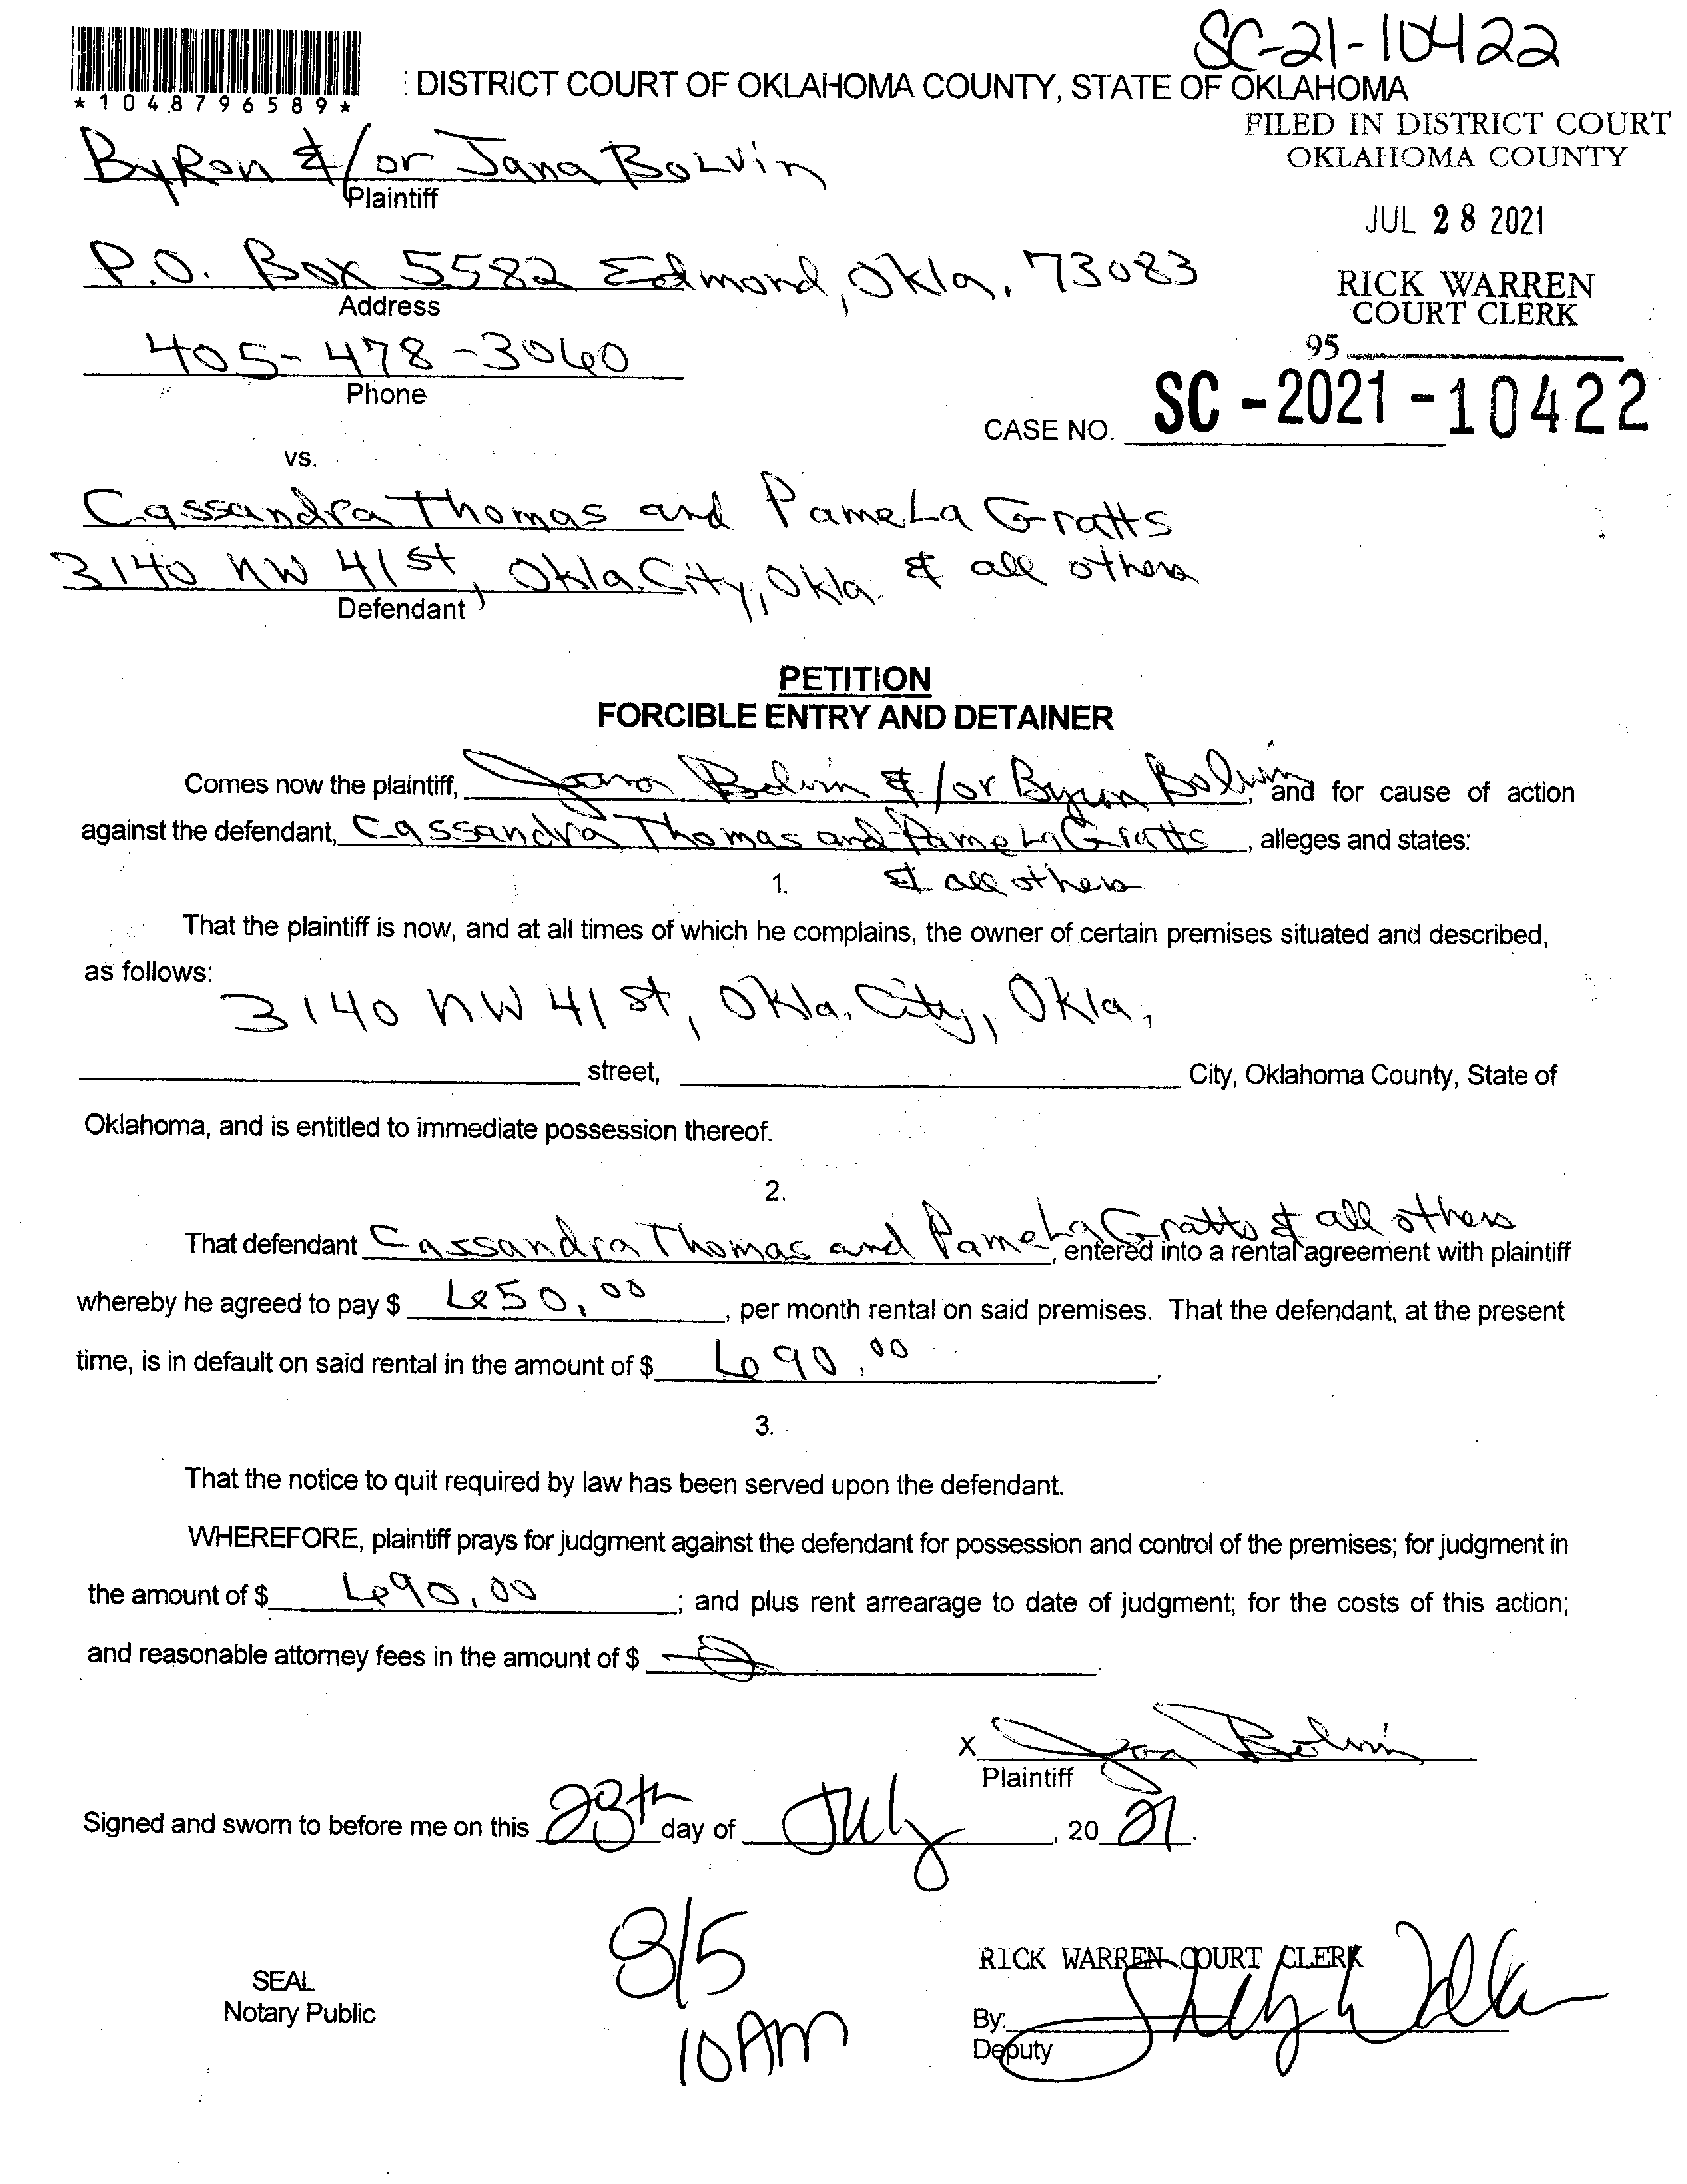 SC-21-10422
*1048796589*
DISTRICT COURT OF OKLAHOMA COUNTY, STATE OF OKLAHOMA
FILED IN DISTRICT COURT
OKLAHOMA COUNTY
ByRon &/or Jana BoLvin
Plaintiff
JUL 28 2021
P.O. Box 5582 Edmond, Okla. 73083
Address
RICK WARREN
COURT CLERK
405-478-3060
Phone
95
CASE NO. SC-2021-10422
vs.
Cassandra Thomas and PameLa Gratts
3140 NW 41st, Okla. City, Okla. & all others
Defendant
PETITION
FORCIBLE ENTRY AND DETAINER
Comes now the plaintiff, Jana Bolvin &/or Byron Bolvin, and for cause of action
against the defendant, Cassandra Thomas and PameLa Gratts, alleges and states:
1. & all others
That the plaintiff is now, and at all times of which he complains, the owner of certain premises situated and described,
as follows:
3140 NW 41st, Okla. City, Okla.
street, City, Oklahoma County, State of
Oklahoma, and is entitled to immediate possession thereof.
2.
That defendant Cassandra Thomas and PameLa Gratts & all others, entered into a rental agreement with plaintiff
whereby he agreed to pay $ 650.00, per month rental on said premises. That the defendant, at the present
time, is in default on said rental in the amount of $ 690.00.
3.
That the notice to quit required by law has been served upon the defendant.
WHEREFORE, plaintiff prays for judgment against the defendant for possession and control of the premises; for judgment in
the amount of $ 690.00; and plus rent arrearage to date of judgment; for the costs of this action;
and reasonable attorney fees in the amount of $
X Jana Bolvin
Plaintiff
Signed and sworn to before me on this 28th day of July, 20 21.
8/5
10AM
SEAL
Notary Public
RICK WARREN COURT CLERK
By:
Deputy